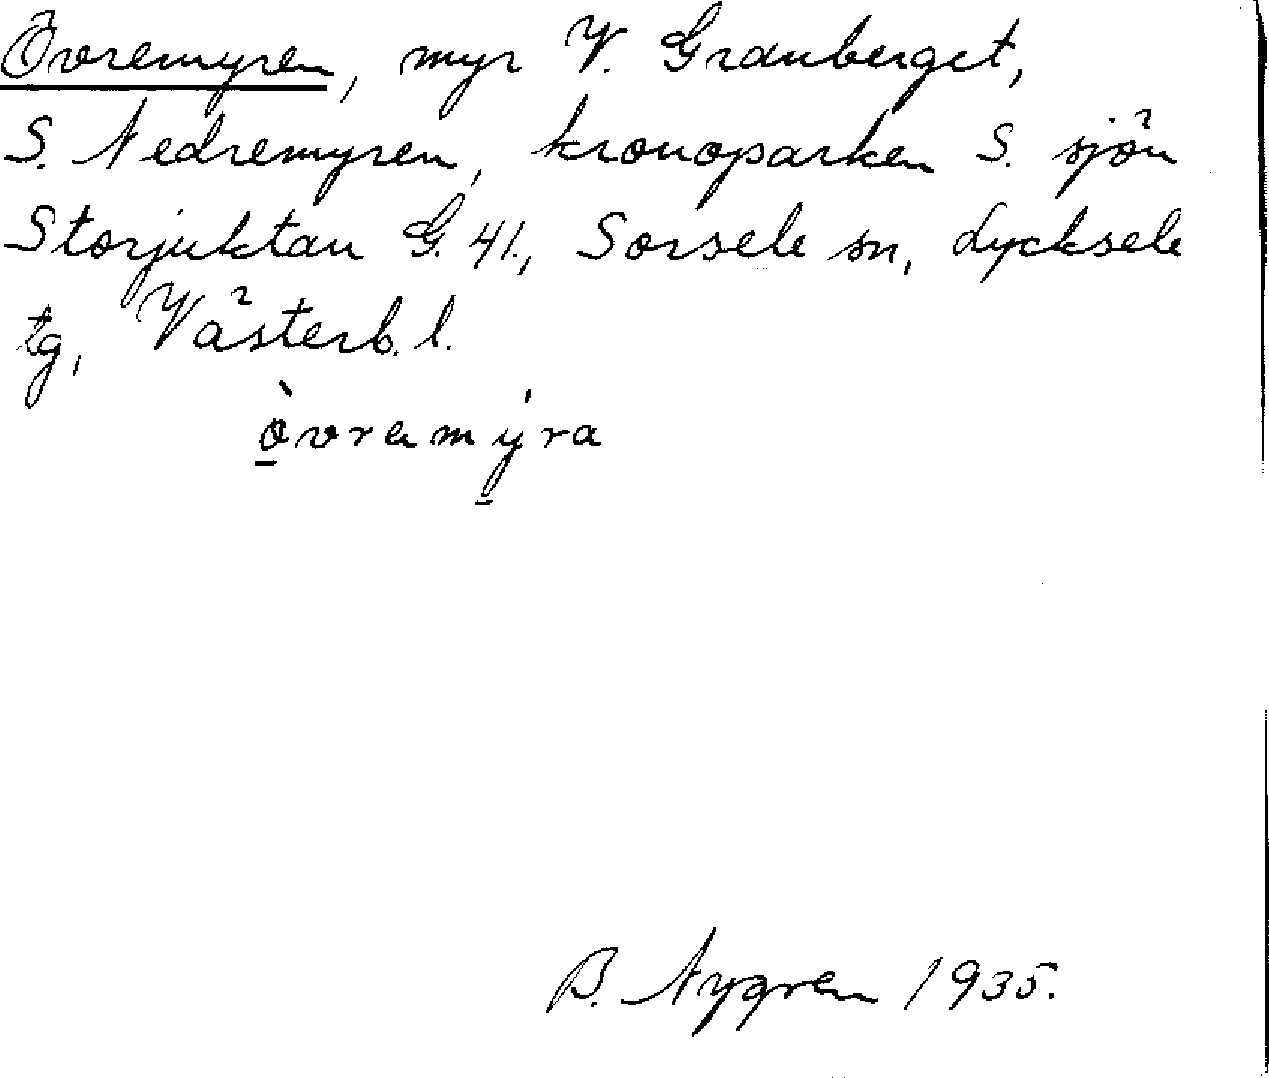 Övremyren, myr V. Granberget,
S. Nedremyren, kronoparken S. sjön
Storjuktan G. 41., Sorsele sn, Lycksele
tg, Västerb. l.
ò̱vrem ý̱ra
B. Nygren 1935.